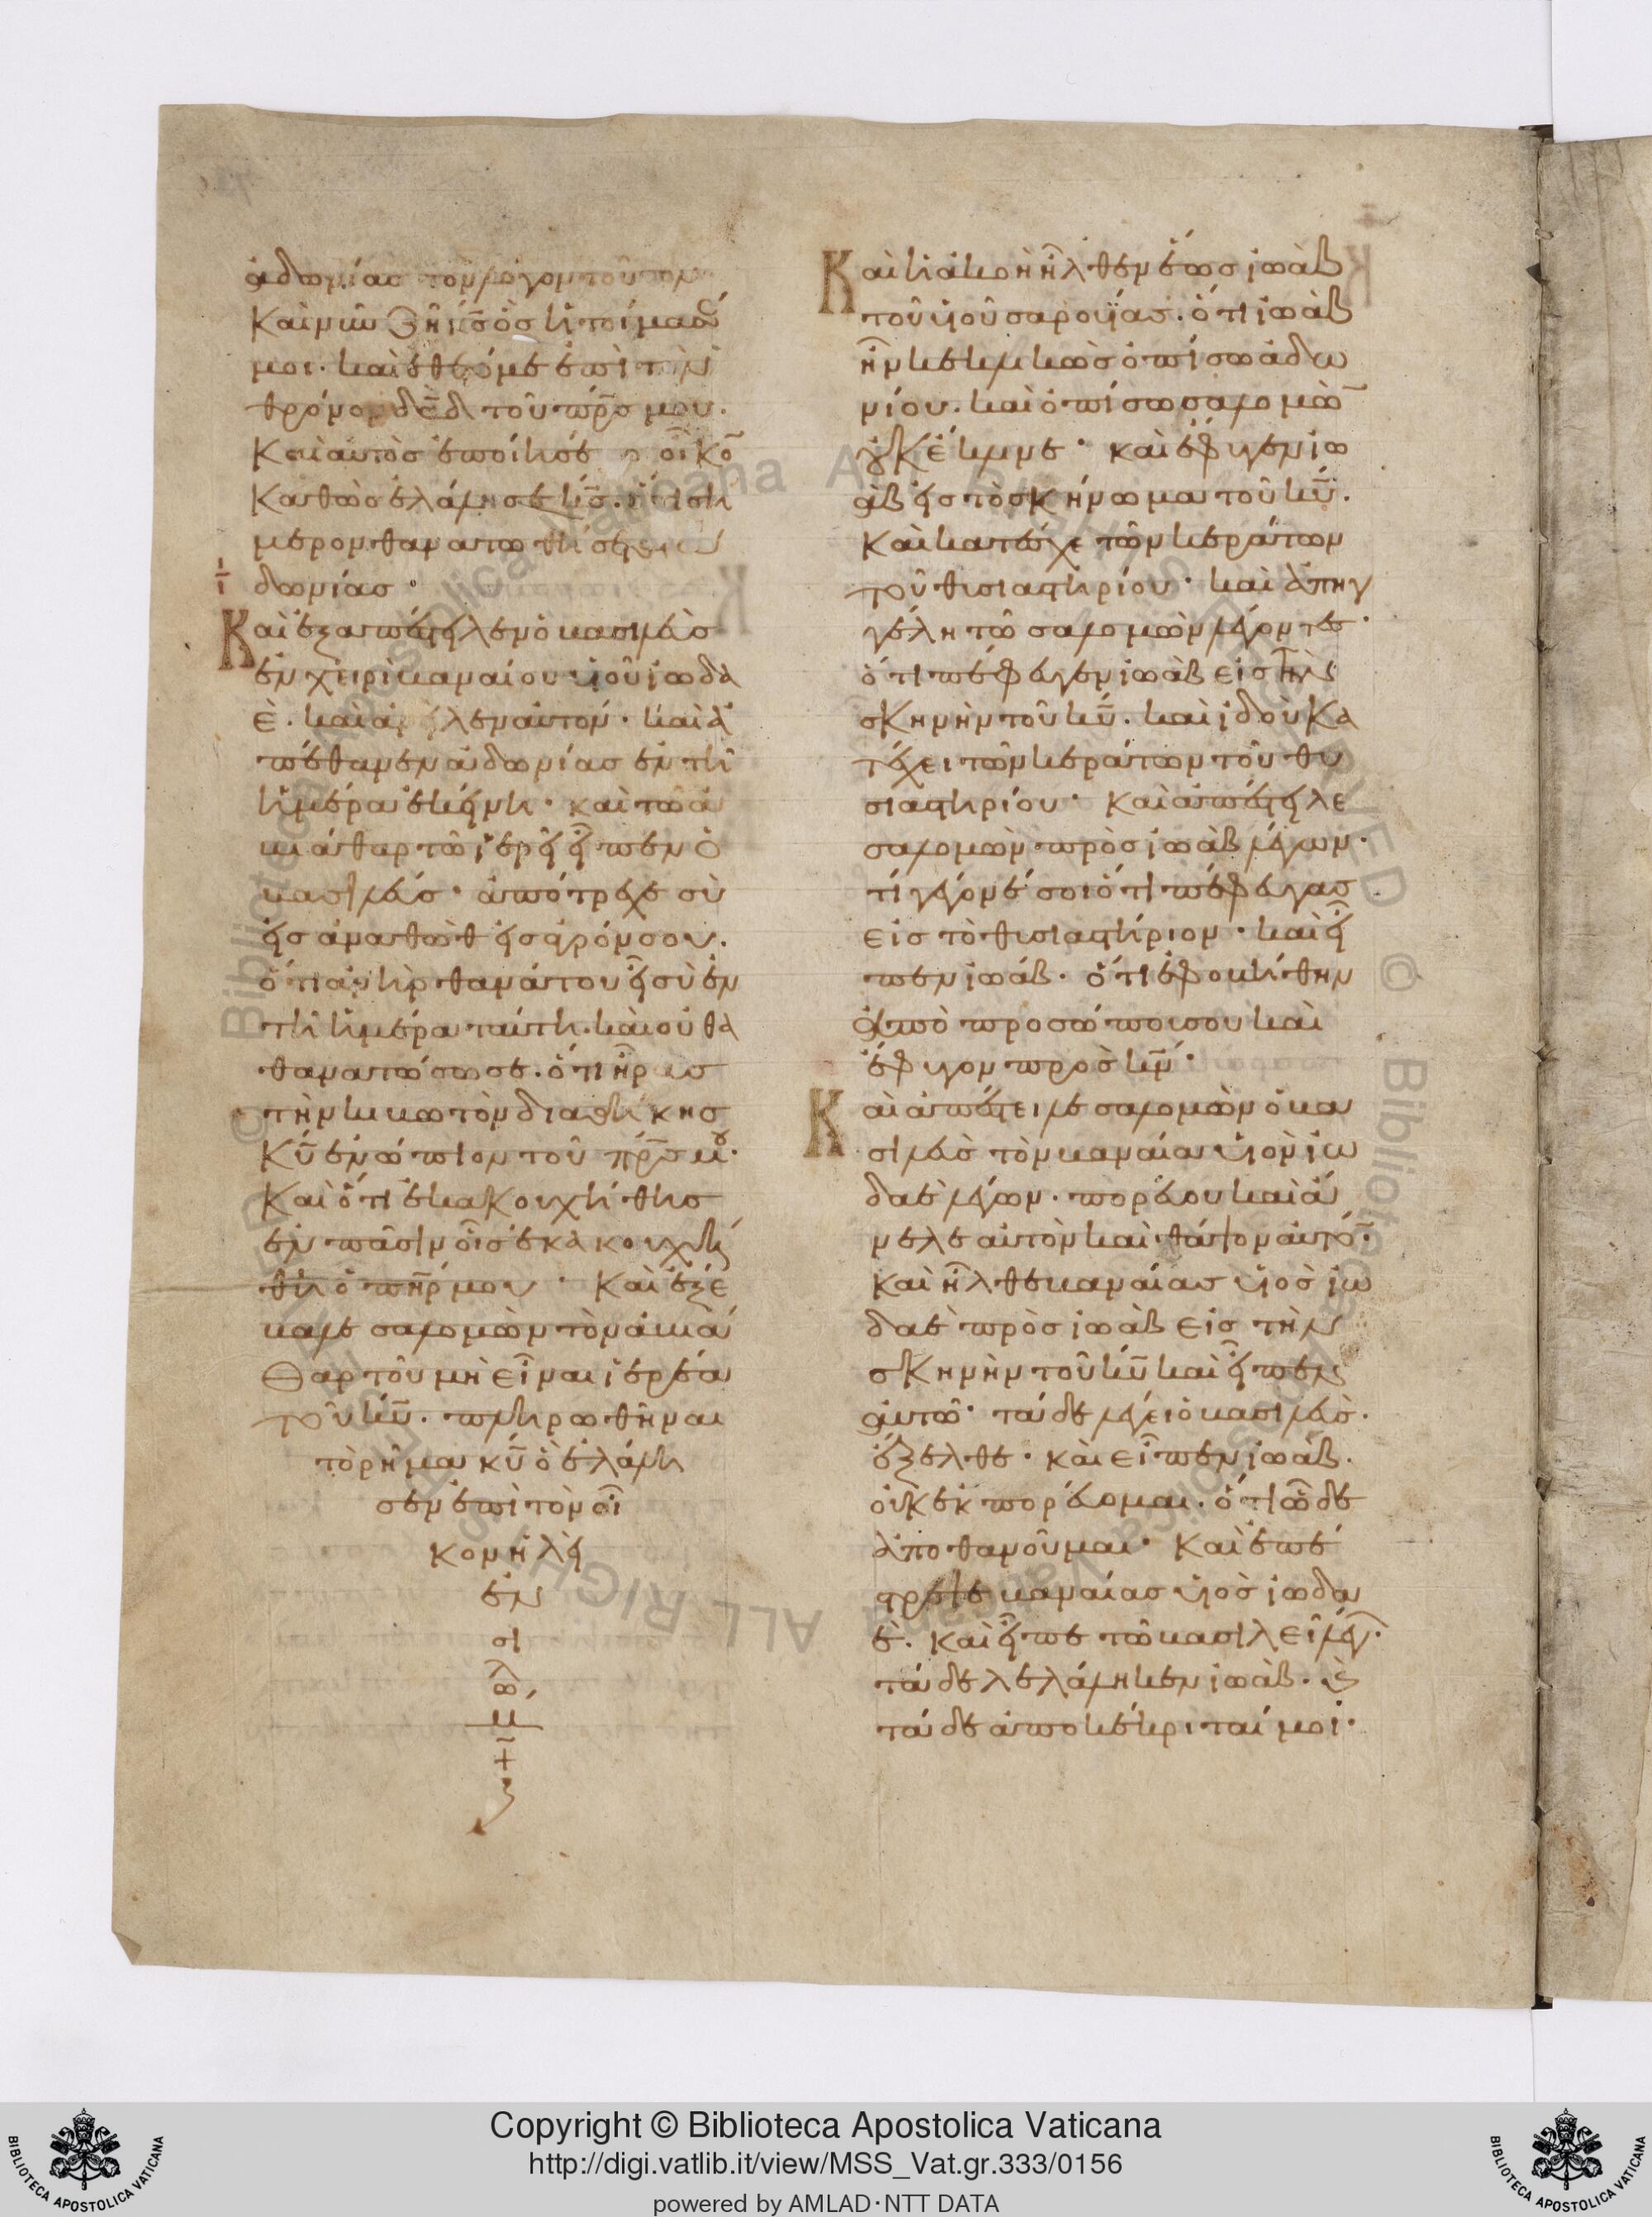 ἀδωνίας τὸν λόγον τοῦτον
Καὶ νῦν ζῆ κ̅ς̅ ὃς ἡτοίμασέ
μοι. καὶ ἔθετό με ἐπὶ τὸν
θρόνον δ̅ᾱδ̅ τοῦ π̅ρ̅ς̅ μου.
Καὶ αὐτὸς ἐποίησέ μοι οἶκο̅
Καθὼς ἐλάλησε κ̅ς̅. ὅτι σή
μερον θανατωθήσεται ἀ
δωνίας·
Καὶ ἐξαπέστειλεν ὁ βασιλεὺς
ἐν χειρὶ βαναίου υἱοῦ ἰωδα
ὲ. καὶ ἀνεῖλεν αὐτόν. καὶ ἀ
πέθανεν ἀδωνίας ἐν τῆ
ἡμέρα ἐκείνη· καὶ τῶ ἀ
βιάθαρ τῶ ἱερεῖ εἶπεν ὁ
βασιλεύς· ἀπότρεχε σὺ
εἰς ἀναθὼθ εἰς ἀγρόν σου.
ὅτι ἀνὴρ θανάτου εἶ σὺ ἐν
τῆ ἡμέρα ταύτη. καὶ οὐ θα
θανατώσω σε. ὅτι ἦρας
τὴν κιβωτὸν διαθήκης
Κ̅υ̅ ἐνώπιον τοῦ π̅ρ̅ς̅ μου.
Καὶ ὅτι ἐκακουχήθης
ἐν πᾶσιν οἷς ἐκακουχή
θη ὁ π̅η̅ρ̅ μου· Καὶ ἐξέ
βαλε σαλομὼν τὸν ἀβιά
θαρ τοῦ μὴ εἶναι ἱερέα
τοῦ κ̅υ̅. πληρωθῆναι
τὸ ρῆμα κ̅υ̅ ὃ ἐλάλη
σεν ἐπὶ τὸν οἶ
κον ἠλεὶ
ἐν
σι
λω
μ
+
Καὶ ἡ ἀκοὴ ἦλθεν ἕως ἰωὰβ
τοῦ υἱοῦ σαρουΐας. ὅτι ἰωὰβ
ἦν κεκλικὼς ὀπίσω ἀδω
νίου. καὶ ὀπίσω σαλομὼ̅
οὐκ ἔκλινε· καὶ ἔφυγεν ἰω
ὰβ εἰς τὸ σκήνωμα τοῦ κ̅υ̅.
Καὶ κατέσχε τῶν κεράτων
τοῦ θυσιαστηρίου· καὶ ἀπηγ
γέλη τῶ σαλομὼν λέγοντες·
ὅτι πέφευγεν ἰωὰβ εἰς τὴν
σκηνὴν τοῦ κ̅υ̅. καὶ ἰδοὺ κα
τέχει τῶν κεράτων τοῦ θυ
σιαστηρίου· Καὶ ἀπέστειλε
σαλομὼν πρὸς ἰωὰβ λέγων·
τί γέγονέ σοι ὅτι πέφευγας
εἰς τὸ θυσιαστήριον· καὶ εἶ
πεν ἰωάβ. ὅτι ἐφοβήθην
ἀπὸ προσώπου σου καὶ
ἔφυγον πρὸς κ̅ν̅·
Καὶ ἀπέστειλε σαλομὼν ὁ βα
σιλεὺς τὸν βαναία υἱὸν ἰω
δαὲ λέγων. πορεύου καὶ ἄ
νελε αὐτὸν καὶ θάψον αὐτό̅·
Καὶ ἦλθε βαναίας υἱὸς ἰω
δαὲ πρὸς ἰωὰβ εἰς τὴν
σκηνὴν τοῦ κ̅υ̅ καὶ εἶπεν
αὐτῶ· τάδε λέγει ὁ βασιλεύς.
ἔξελθε· καὶ εἶπεν ἰωάβ.
οὐκ ἐκπορεύομαι. ὅτι ὧδε
ἀποθανοῦμαι· Καὶ ἐπέ
στρεψε βαναίας υἱὸς ἰωδα
ὲ. καὶ εἶπε τῶ βασιλεῖ λέγων·
τάδε λελάληκεν ἰωάβ. καὶ
τάδε ἀποκέκριταί μοι·
Copyright © Biblioteca Apostolica Vaticana
http://digi.vatlib.it/view/MSS_Vat.gr.333/0156
powered by AMLAD·NTT DATA
BIBLIOTECA APOSTOLICA VATICANA
BIBLIOTECA APOSTOLICA VATICANA